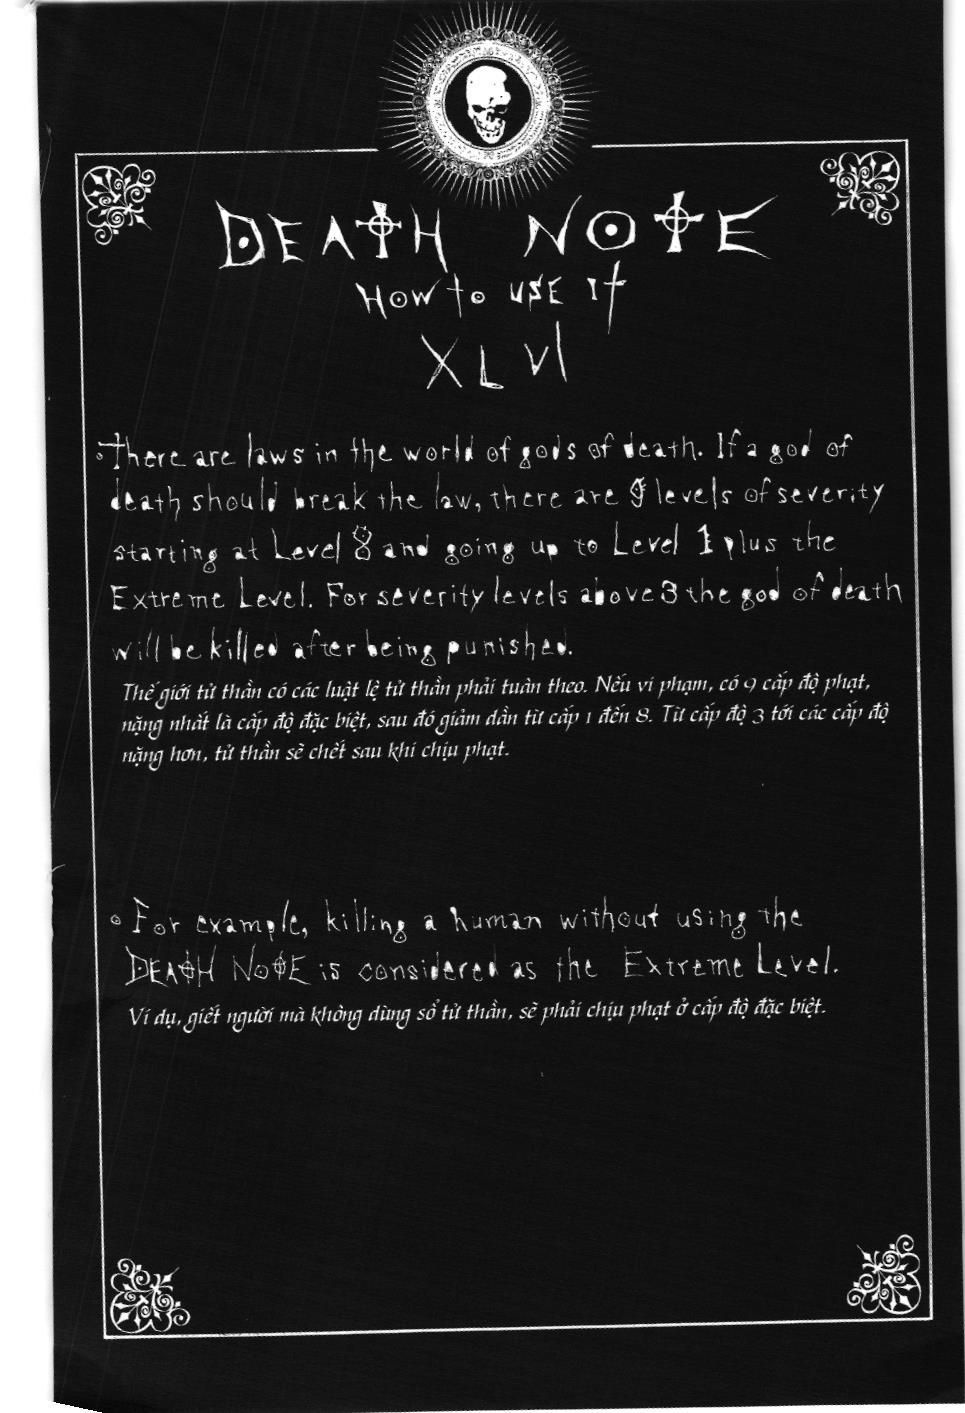 DEATH NOTE
How to use it
XLVI
There are laws in the world of gods of death. If a god of
death should break the law, there are 9 levels of severity
starting at Level 8 and going up to Level 1 plus the
Extreme Level. For severity levels above 3 the god of death
will be killed after being punished.
Thế giới tử thần có các luật lệ tử thần phải tuân theo. Nếu vi phạm, có 9 cấp độ phạt,
nặng nhất là cấp độ đặc biệt, sau đó giảm dần từ cấp 1 đến 8. Từ cấp độ 3 tới các cấp độ
nặng hơn, tử thần sẽ chết sau khi chịu phạt.
For example, killing a human without using the
DEATH NOTE is considered as the Extreme Level.
Ví dụ, giết người mà không dùng sổ tử thần, sẽ phải chịu phạt ở cấp độ đặc biệt.